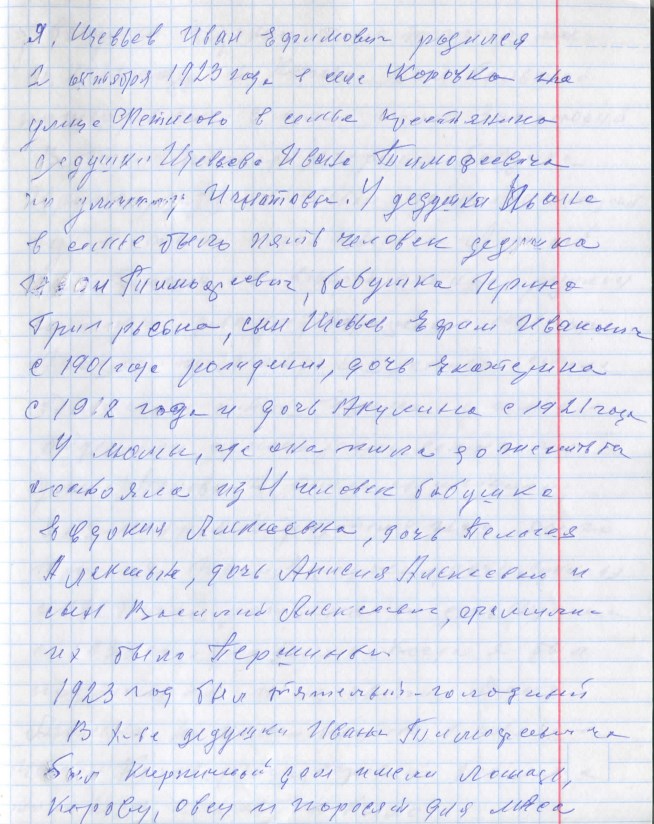 Я, Щевьев Иван Ефимович родился
2 октября 1923 года в селе Коровка на
улице в семье крестьянина
дедушки Щевьева Ивана Тимофеевича
по Игнатовы. У дедушки Ивана
в семье было пять человек дедушка
Иван Тимофеевич, бабушка Ирина
Григорьевна, сын Щевьев Ефим Иванович
с 1901 года рождения, дочь Екатерина
с 1912 года и дочь Акулина с 1921 года
У мамы, где она жила до женитьбы
состояла из 4 человек бабушка
Евдокия Алексеевна, дочь Пелагея
Алексеевна, дочь Анисия Алексеевна и
сын Василий Алексеевич, фамилия
их было Першины
1923 год был тяжелый-голодный
В х-ве дедушки Ивана Тимофеевича
был кирпичный дом имели лошадь,
корову, овец и поросят для мяса